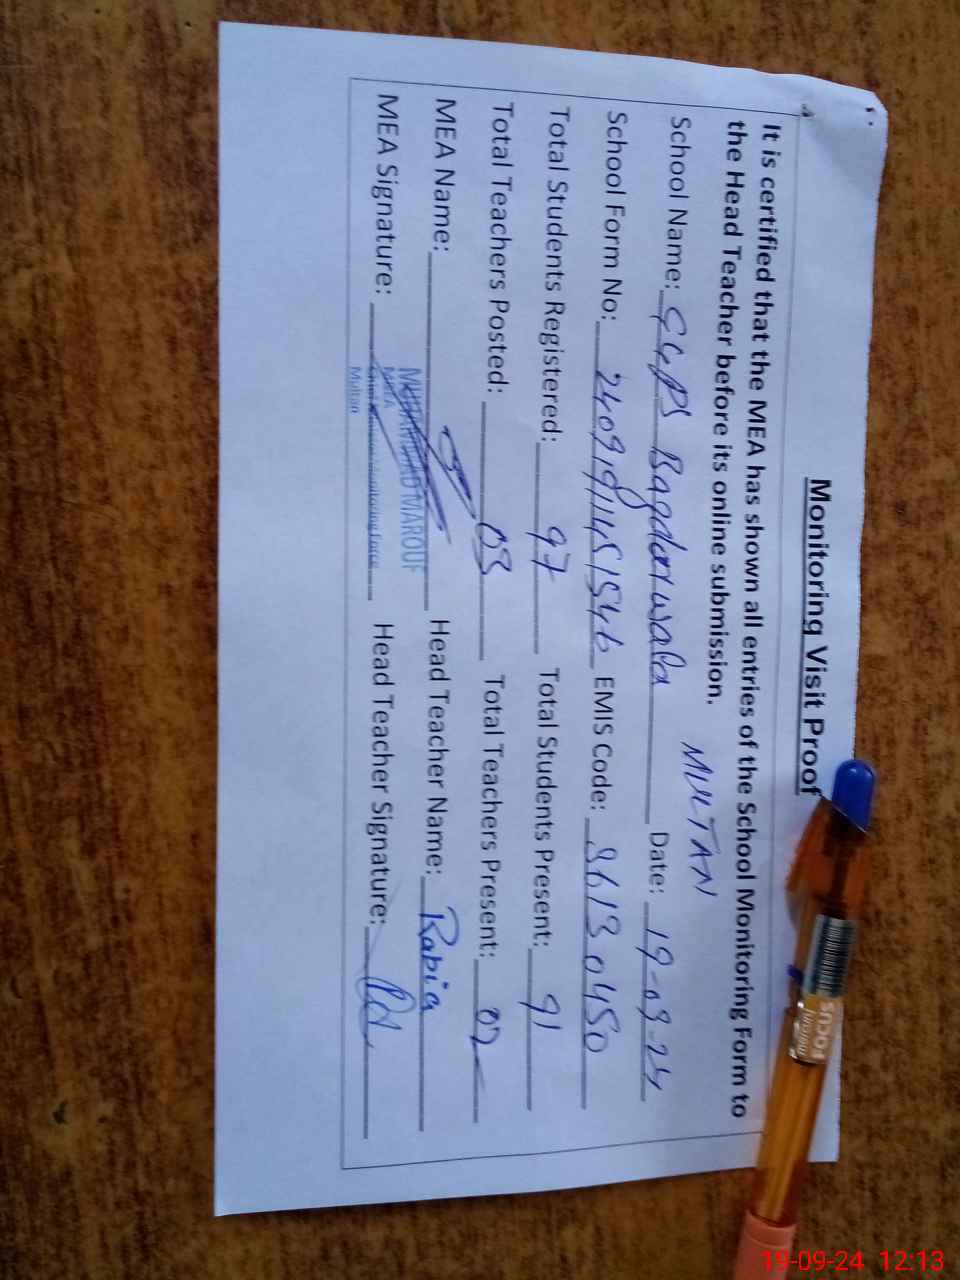 Monitoring Visit Proof
It is certified that the MEA has shown all entries of the School Monitoring Form to
the Head Teacher before its online submission.
MULTAN
School Name: GGPS Bagdarwala Date: 19-09-24
School Form No: EMIS Code: 36130450
Total Students Registered: 97 Total Students Present: 91
Total Teachers Posted: 03 Total Teachers Present: 02
MEA Name: MUHAMMAD MAROUF Head Teacher Name: Rabia
MEA Signature: MEA Head Teacher Signature:
Chief Minister Monitoring Force
Multan
FOCUS
19-09-24 12:13